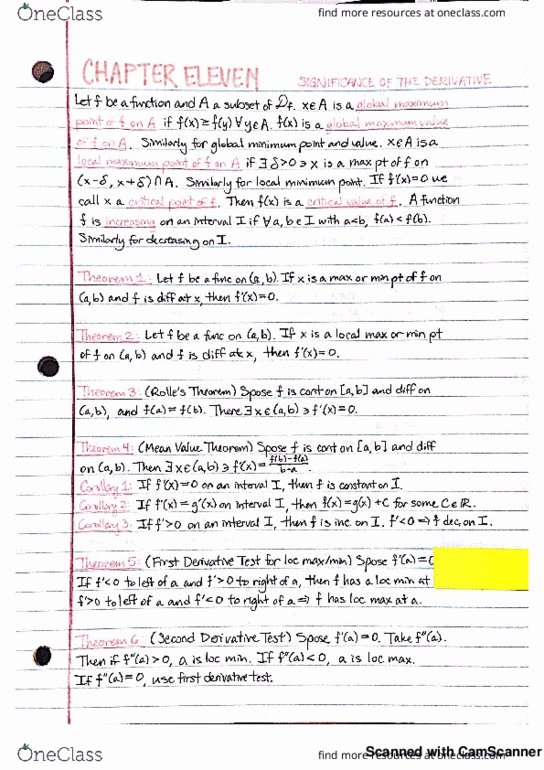 OneClass
find more resources at oneclass.com
CHAPTER ELEVEN
SIGNIFICANCE OF THE DERIVATIVE
Let f be a function and A a subset of Df. x∈A is a global maximum
point of f on A if f(x)≥f(y) ∀y∈A. f(x) is a global maximum value
of f on A. Similarly for global minimum point and value. x∈A is a
local maximum point of f on A if ∃δ>0 ∋ x is a max pt of f on
(x-δ, x+δ)∩A. Similarly for local minimum point. If f'(x)=0 we
call x a critical point of f. Then f(x) is a critical value of f. A function
f is increasing on an interval I if ∀a,b∈I with a<b, f(a)<f(b).
Similarly for decreasing on I.
Theorem 1: Let f be a func on (a,b). If x is a max or min pt of f on
(a,b) and f is diff at x, then f'(x)=0.
Theorem 2: Let f be a func on (a,b). If x is a local max or min pt
of f on (a,b) and f is diff at x, then f'(x)=0.
Theorem 3: (Rolle's Theorem) Spose f is cont on [a,b] and diff on
(a,b), and f(a)=f(b). There ∃x∈(a,b) ∋ f'(x)=0.
Theorem 4: (Mean Value Theorem) Spose f is cont on [a,b] and diff
on (a,b). Then ∃x∈(a,b) ∋ f'(x)= f(b)-f(a) / b-a .
Corollary 1: If f'(x)=0 on an interval I, then f is constant on I.
Corollary 2: If f'(x)=g'(x) on interval I, then f(x)=g(x)+C for some C∈ℝ.
Corollary 3: If f'>0 on an interval I, then f is inc. on I. f'<0 ⇒ f dec, on I.
Theorem 5: (First Derivative Test for loc max/min) Spose f'(a)=0
If f'<0 to left of a and f'>0 to right of a, then f has a loc min at
f'>0 to left of a and f'<0 to right of a ⇒ f has loc max at a.
Theorem 6: (Second Derivative Test) Spose f'(a)=0. Take f''(a).
Then if f''(a)>0, a is loc min. If f''(a)<0, a is loc max.
If f''(a)=0, use first derivative test.
OneClass
find more resources at oneclass.com
Scanned with CamScanner